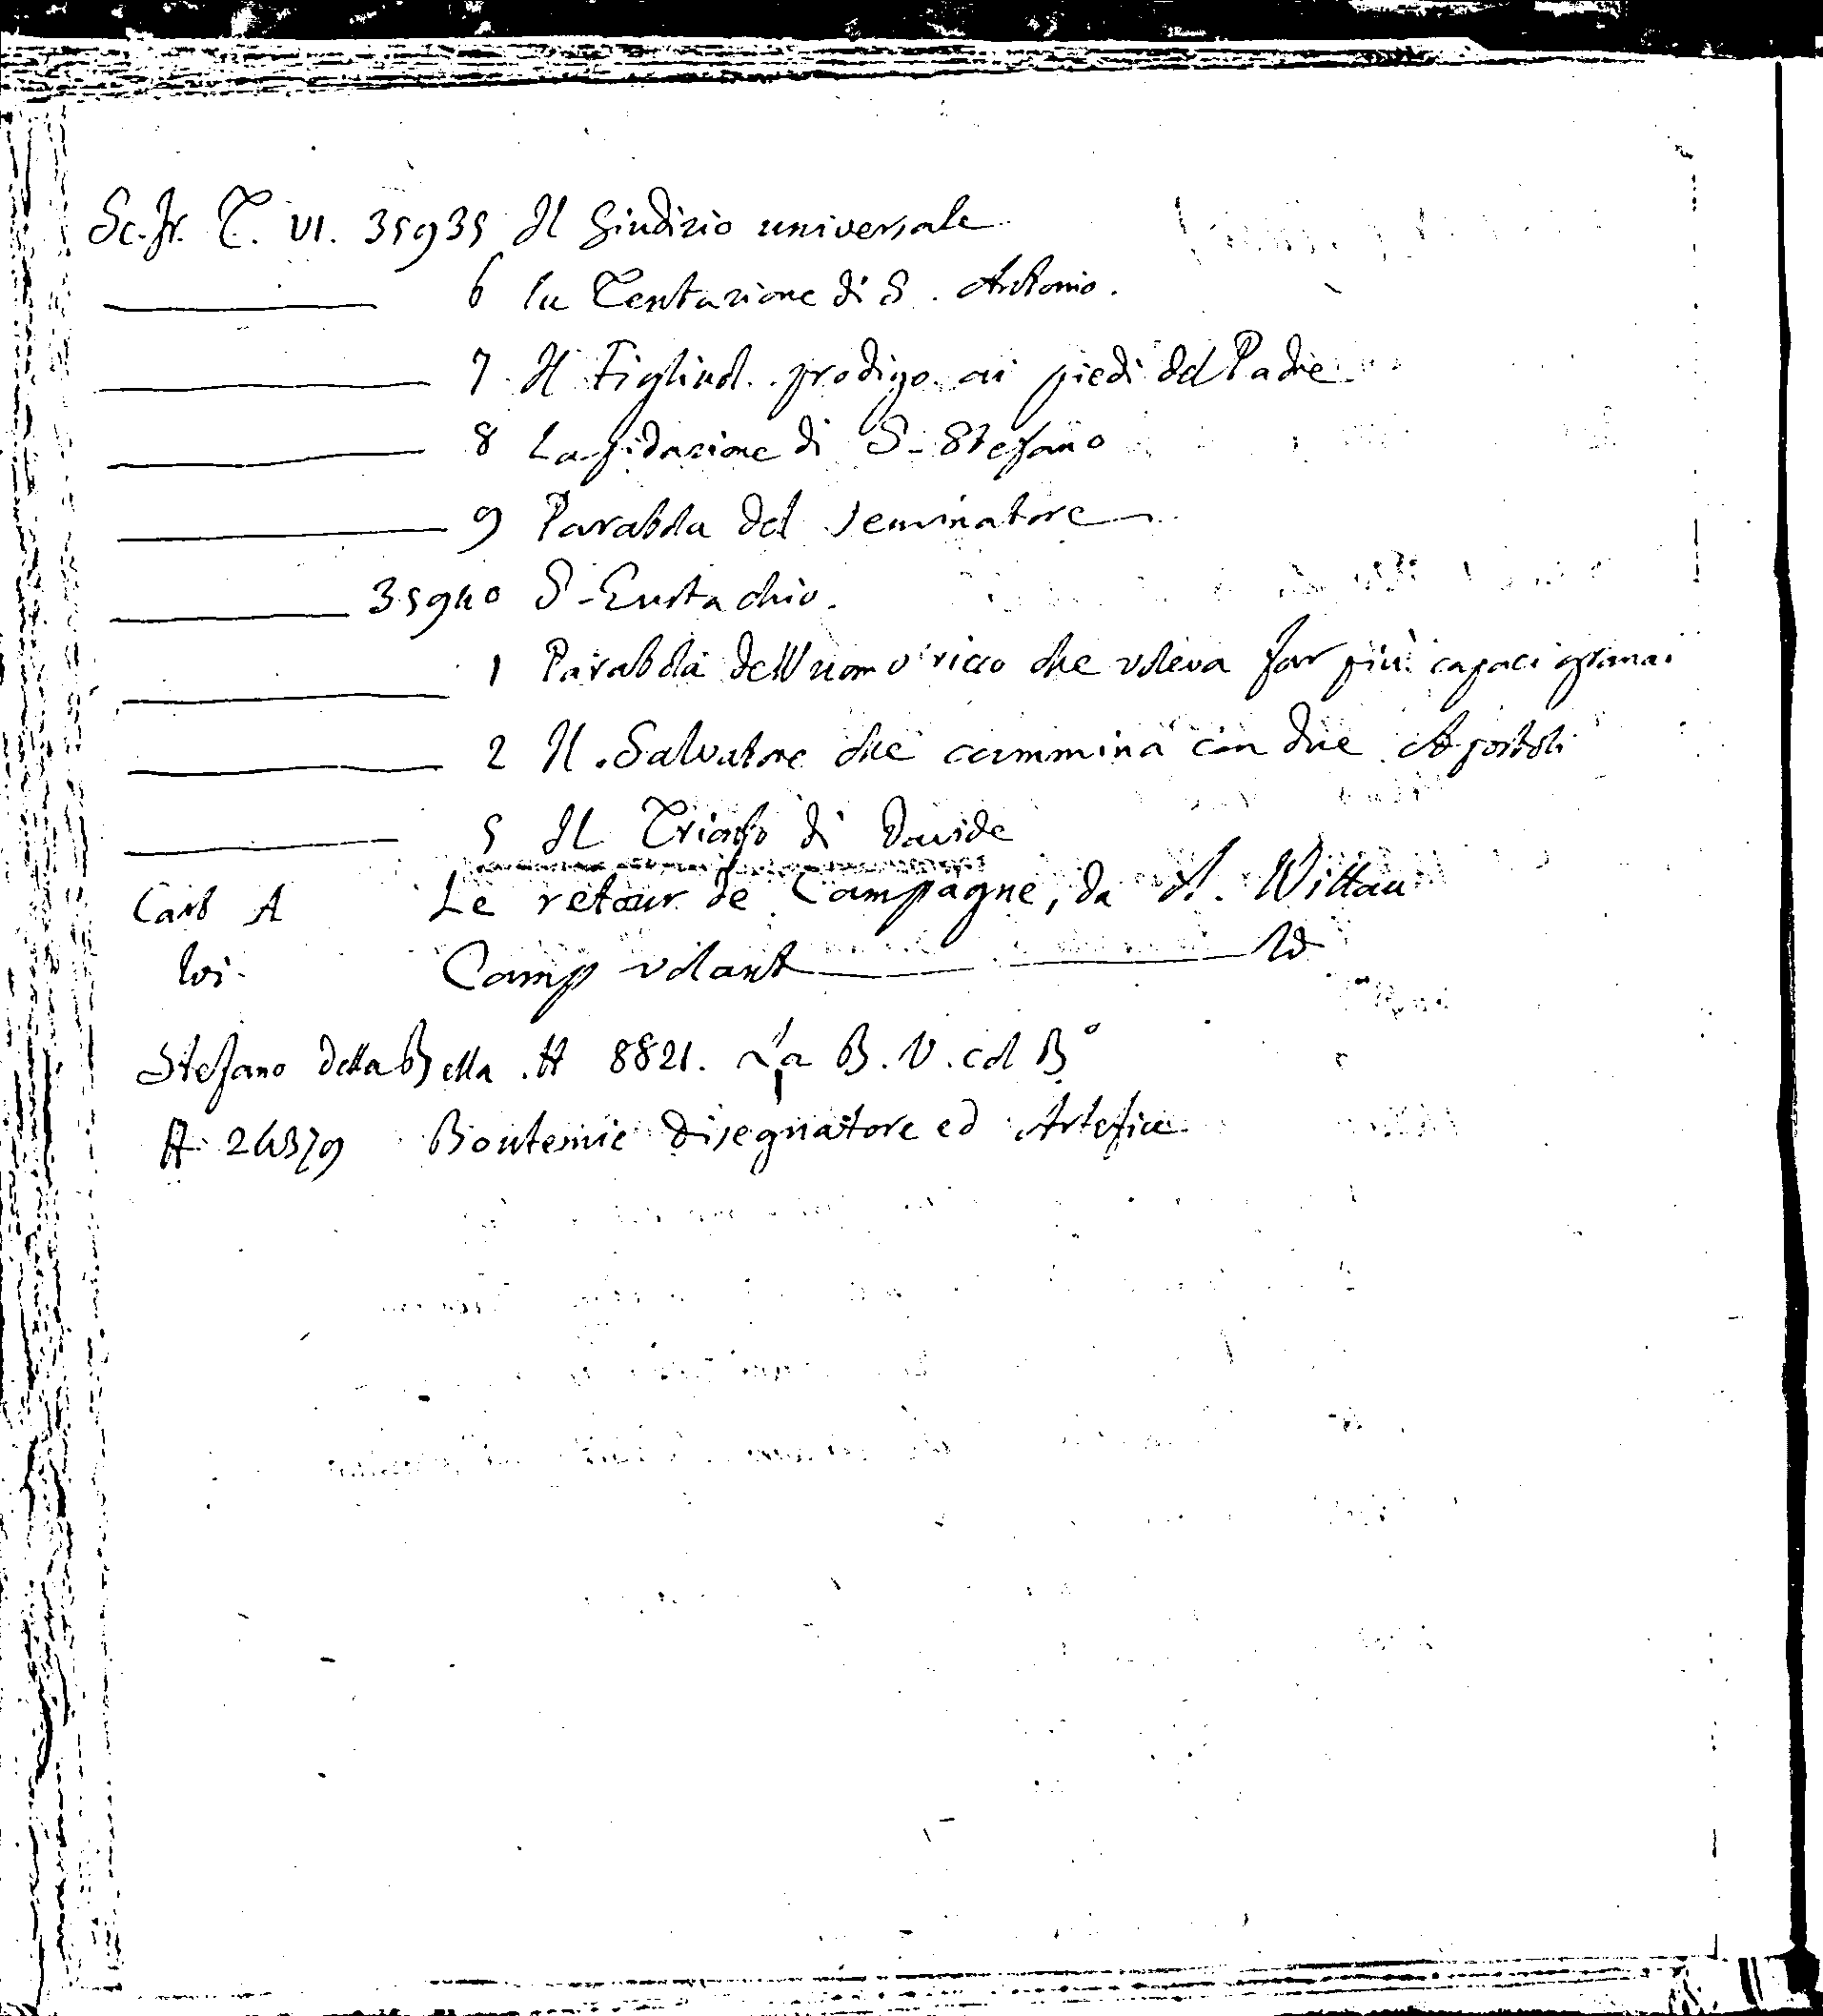 Sc. fr. T. VI. 35935 Il Giudizio universale
6 la Tentazione di S. Antonio.
7 Il Figliuol. prodigo ai piedi del Padre
8 Lapidazione di S. Stefano
9 Parabola del seminatore
35940 S. Eustachio.
1 Parabola dell'uomo ricco che voleva far più capaci i granai
2 Il Salvatore che cammina con due Apostoli
5 Il Trionfo di Davide
Cart A Le retour de Campagne, da A. Wittau
Ivi Camp volant Id
Stefano della Bella. A 8821. La B. V. col B.º
A 24379 Boutemie disegnatore ed Artefice